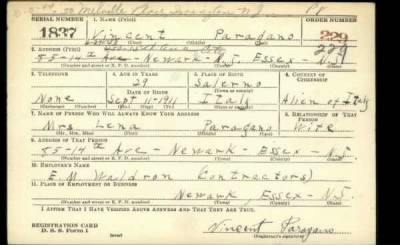 Melville Place Irvington N.J.
SERIAL NUMBER 1. NAME (Print) ORDER NUMBER
1837 Vincent Paragano 229
(First) (Middle) (Last)
229
2. ADDRESS (Print)
85-14th Ave - Newark - N.J. Essex - N.J.
(Number and street or R. F. D. number) (Town) (County) (State)
3. TELEPHONE 4. AGE IN YEARS 5. PLACE OF BIRTH 6. COUNTRY OF CITIZENSHIP
29 Salerno
DATE OF BIRTH
None Sept 1911 Italy Alien of Italy
(Exchange) (Number) (Mo.) (Day) (Yr.) (State or country)
7. NAME OF PERSON WHO WILL ALWAYS KNOW YOUR ADDRESS 8. RELATIONSHIP OF THAT PERSON
Mrs Lena Paragano Wife
(Mr., Mrs., Miss) (First) (Middle) (Last)
9. ADDRESS OF THAT PERSON
85-14th Ave - Newark - Essex - N.J.
(Number and street or R. F. D. number) (Town) (County) (State)
10. EMPLOYER'S NAME
E. M. Waldron Contractors)
11. PLACE OF EMPLOYMENT OR BUSINESS
Newark, Essex - N.J.
(Number and street or R. F. D. number) (Town) (County) (State)
I AFFIRM THAT I HAVE VERIFIED ABOVE ANSWERS AND THAT THEY ARE TRUE.
REGISTRATION CARD
D. S. S. Form 1 (over) Vincent Paragano
(Registrant's signature)